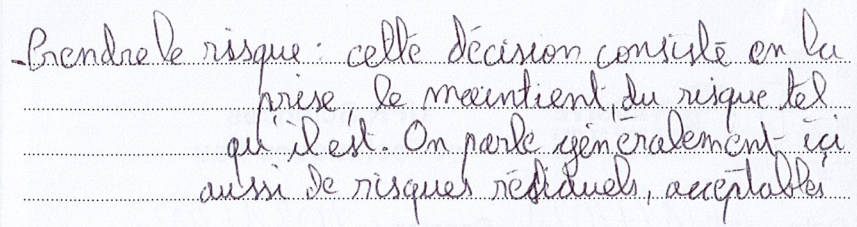 -Prendre le risque : cette décision consiste en la
prise, le maintient, du risque tel
qu'il est. On parle généralement ici
aussi de risques résiduels, acceptables